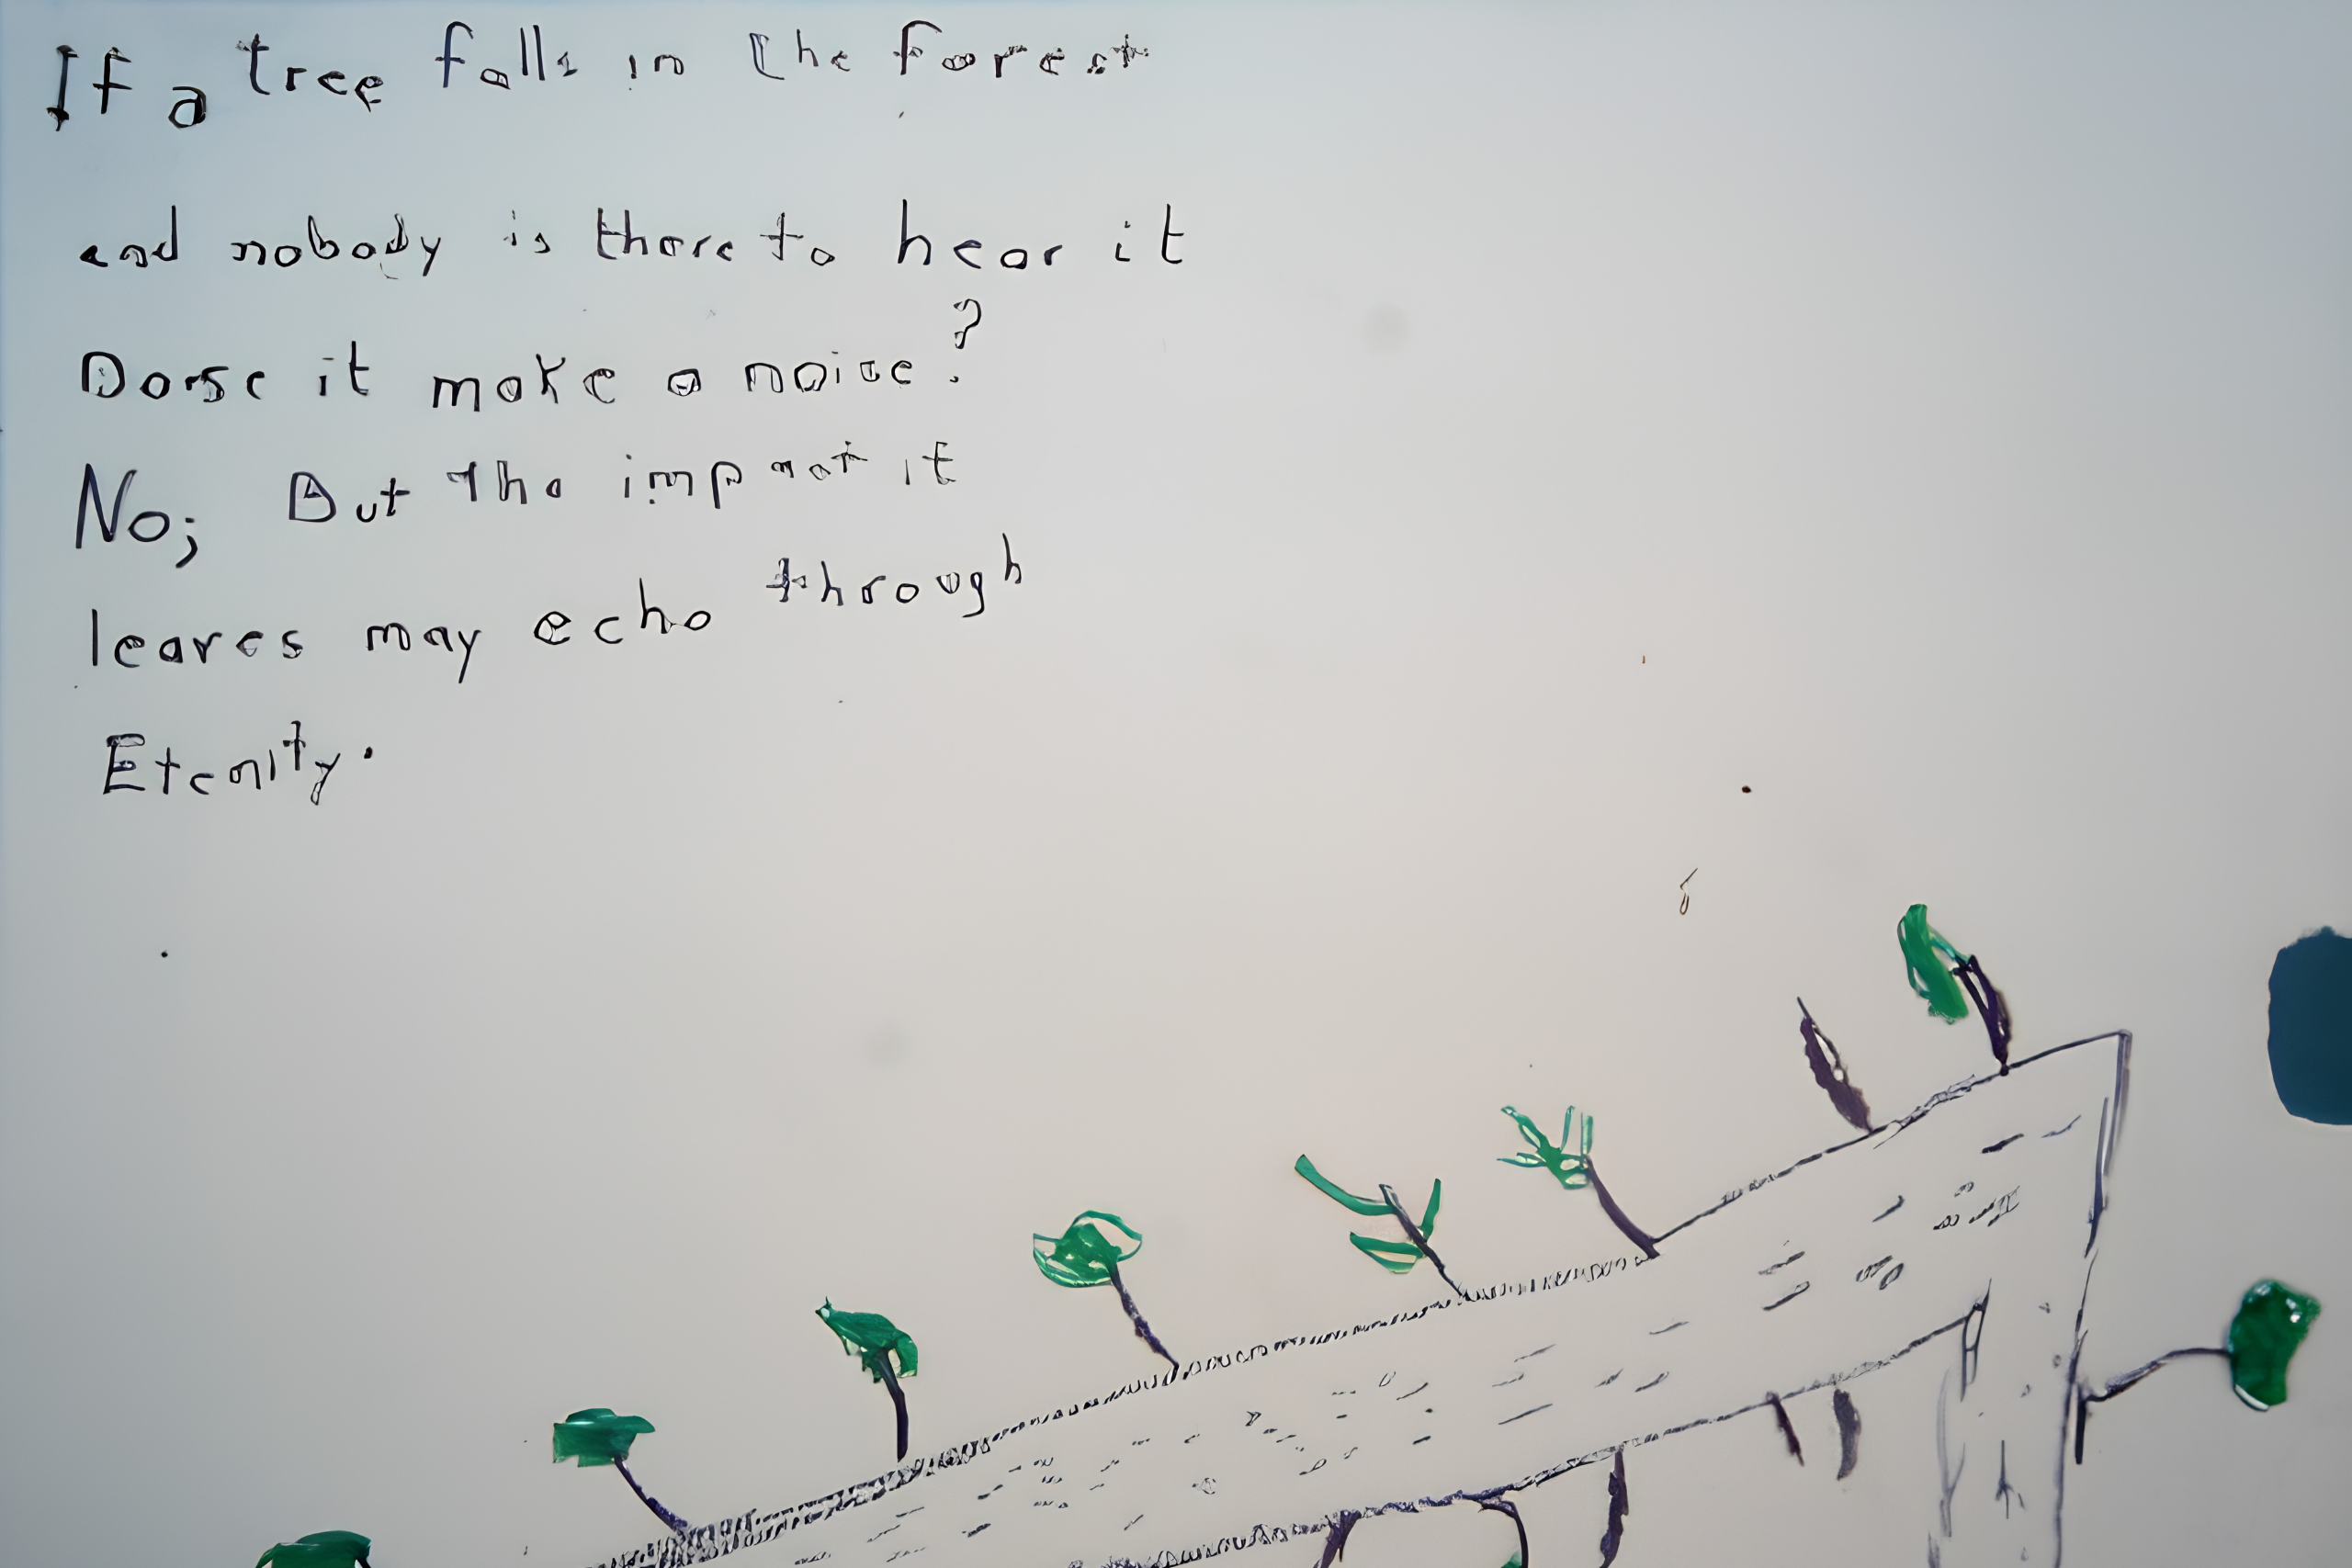 If a tree falls in the forest
and nobody is there to hear it
Dorse it make a noice?
No; But the impact it
leaves may echo through
Eternity.